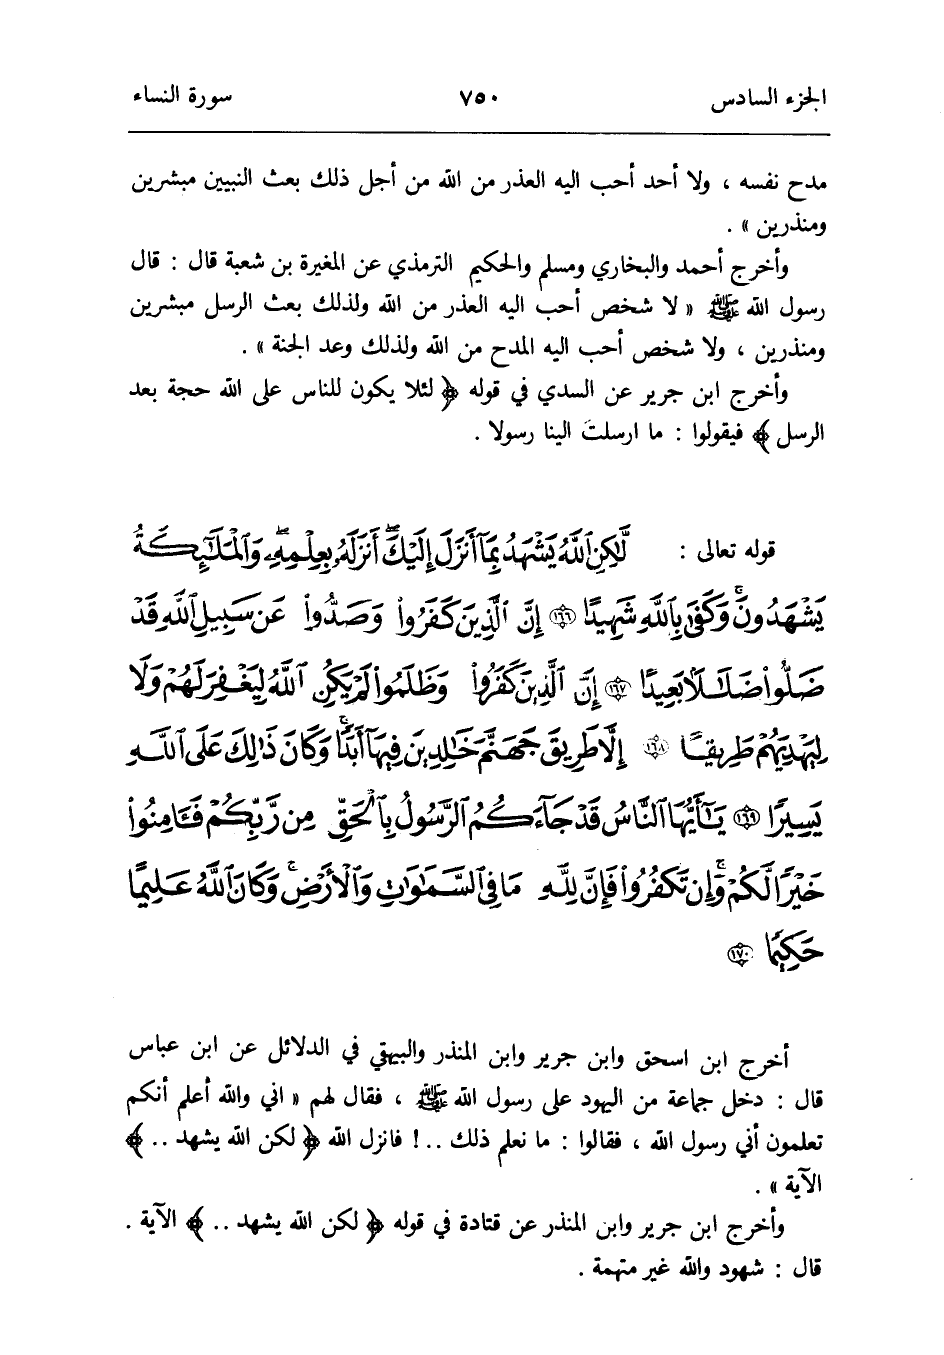 الجزء السادس ٧٥٠ سورة النساء
مدح نفسه ، ولا أحد أحب اليه العذر من الله من أجل ذلك بعث النبيين مبشرين
ومنذرين » .
وأخرج أحمد والبخاري ومسلم والحكيم الترمذي عن المغيرة بن شعبة قال : قال
رسول الله ﷺ « لا شخص أحب اليه العذر من الله ولذلك بعث الرسل مبشرين
ومنذرين ، ولا شخص أحب اليه المدح من الله ولذلك وعد الجنة » .
وأخرج ابن جرير عن السدي في قوله ﴿ لئلا يكون للناس على الله حجة بعد
الرسل ﴾ فيقولوا : ما ارسلتَ الينا رسولا .
قوله تعالى : لَّٰكِنِ ٱللَّهُ يَشْهَدُ بِمَآ أَنزَلَ إِلَيْكَ ۖ أَنزَلَهُۥ بِعِلْمِهِۦ ۖ وَٱلْمَلَٰٓئِكَةُ
يَشْهَدُونَ ۚ وَكَفَىٰ بِٱللَّهِ شَهِيدًا ﴿١٦٦﴾ إِنَّ ٱلَّذِينَ كَفَرُوا۟ وَصَدُّوا۟ عَن سَبِيلِ ٱللَّهِ قَدْ
ضَلُّوا۟ ضَلَٰلًۢا بَعِيدًا ﴿١٦٧﴾ إِنَّ ٱلَّذِينَ كَفَرُوا۟ وَظَلَمُوا۟ لَمْ يَكُنِ ٱللَّهُ لِيَغْفِرَ لَهُمْ وَلَا
لِيَهْدِيَهُمْ طَرِيقًا ﴿١٦٨﴾ إِلَّا طَرِيقَ جَهَنَّمَ خَٰلِدِينَ فِيهَآ أَبَدًا ۚ وَكَانَ ذَٰلِكَ عَلَى ٱللَّهِ
يَسِيرًا ﴿١٦٩﴾ يَٰٓأَيُّهَا ٱلنَّاسُ قَدْ جَآءَكُمُ ٱلرَّسُولُ بِٱلْحَقِّ مِن رَّبِّكُمْ فَـَٔامِنُوا۟
خَيْرًا لَّكُمْ ۚ وَإِن تَكْفُرُوا۟ فَإِنَّ لِلَّهِ مَا فِى ٱلسَّمَٰوَٰتِ وَٱلْأَرْضِ ۚ وَكَانَ ٱللَّهُ عَلِيمًا
حَكِيمًا ﴿١٧٠﴾
أخرج ابن اسحق وابن جرير وابن المنذر والبيهقي في الدلائل عن ابن عباس
قال : دخل جماعة من اليهود على رسول الله ﷺ ، فقال لهم « اني والله أعلم أنكم
تعلمون أني رسول الله ، فقالوا : ما نعلم ذلك ..! فانزل الله ﴿ لكن الله يشهد .. ﴾
الآية » .
وأخرج ابن جرير وابن المنذر عن قتادة في قوله ﴿ لكن الله يشهد .. ﴾ الآية .
قال : شهود والله غير متهمة .